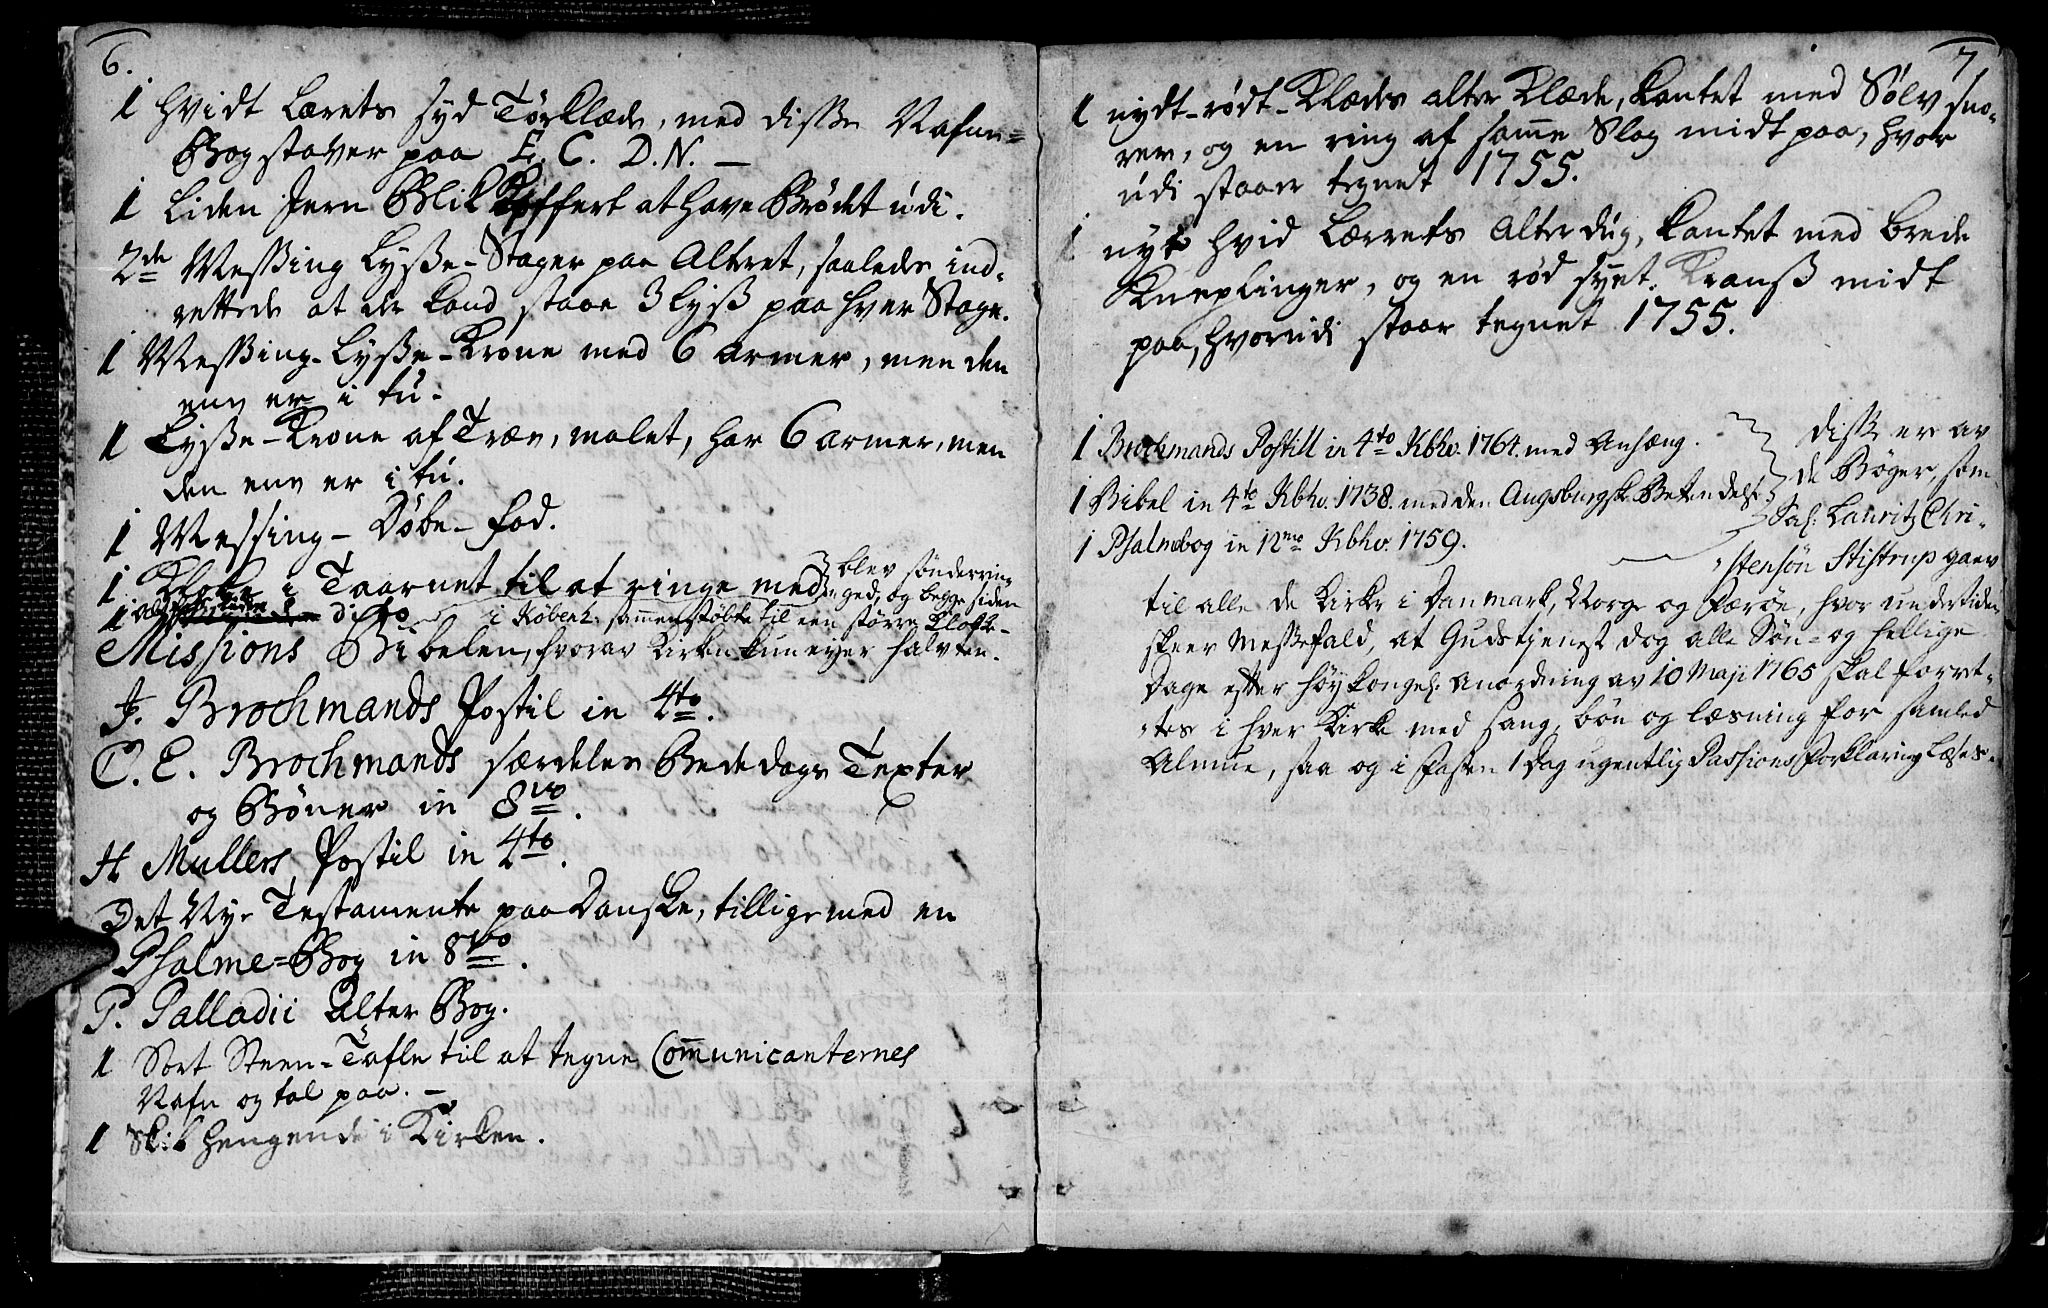 6.
1 hvidt Lærets syd Tørklæde, med disse Nafne=
Bogstaver paa E. C. D. N. —
1 Liden Jern Blik Koffert at have Brødet udi.
2de Messing Lysse-Stager paa Alteret, saaledes ind-
rettede at der kand staae 3 lyss paa hver Stage.
1 Messing-Lysse-Krone med 6 armer, men den
een er i tu.
1 Lysse-Krone af Træe, malet, har 6 armer, men
den een er i tu.
1 Messing-Døbe-Fad.
1. Klokke i Taarnet til at ringe med
blev sønderrin-
1 dito
get, og begge siden
i Københ. sammenstøbte til een større Klokke-
Missions Bibelen, hvorav Kirken kun eyer halvten.
J. Brochmands Postil in 4to.
C. E. Brochmands særdeles Bededags Texter
og Bøner in 8vo.
H Mullers Postil in 4to.
Det Nye Testamente paa Danske, tilligemed en
Psalme=Bog in 8vo.
P. Palladii Alter Bog.
1 Sort Steen-Tafle til at tegne Communicanternes
Nafn og tal paa. —
1 Skib hengende i Kirken.
7
1 nydt-rødt-Klædes alter Klæde, kantet med Sølv sno-
rer, og en ring af samme Slag midt paa, hvor
udi staaer tegnet 1755.
1 nyt hvid Lærrets Alterdug, kantet med brede
Kneplinger, og en rød syet Kranss midt
paa, hvorudi staar tegnet 1755.
1 Brochmands Postill in 4to Kbhv. 1764. med Anhæng.
Disse er av
1 Bibel in 4to Kbhv. 1738. med den Augsburgsk. Bekendelse
de Bøger, som
Sal. Lauritz Chri-
1 Psalmebog in 12mo Kbhv. 1759.
stensøn Stistrup gaev
til alle de Kirker i Danmark, Norge og Færøe, hvor undertiden
skeer Messefald, at Gudstjenest dog alle Søn- og hellige
Dage efter høykongel. Anordning av 10 Maji 1765 skal forret-
tes i hver Kirke med sang, bøn og læsning for samled
Almue, saa og i Fasten 1 Dag ugentlig Passions Forklaring læses.